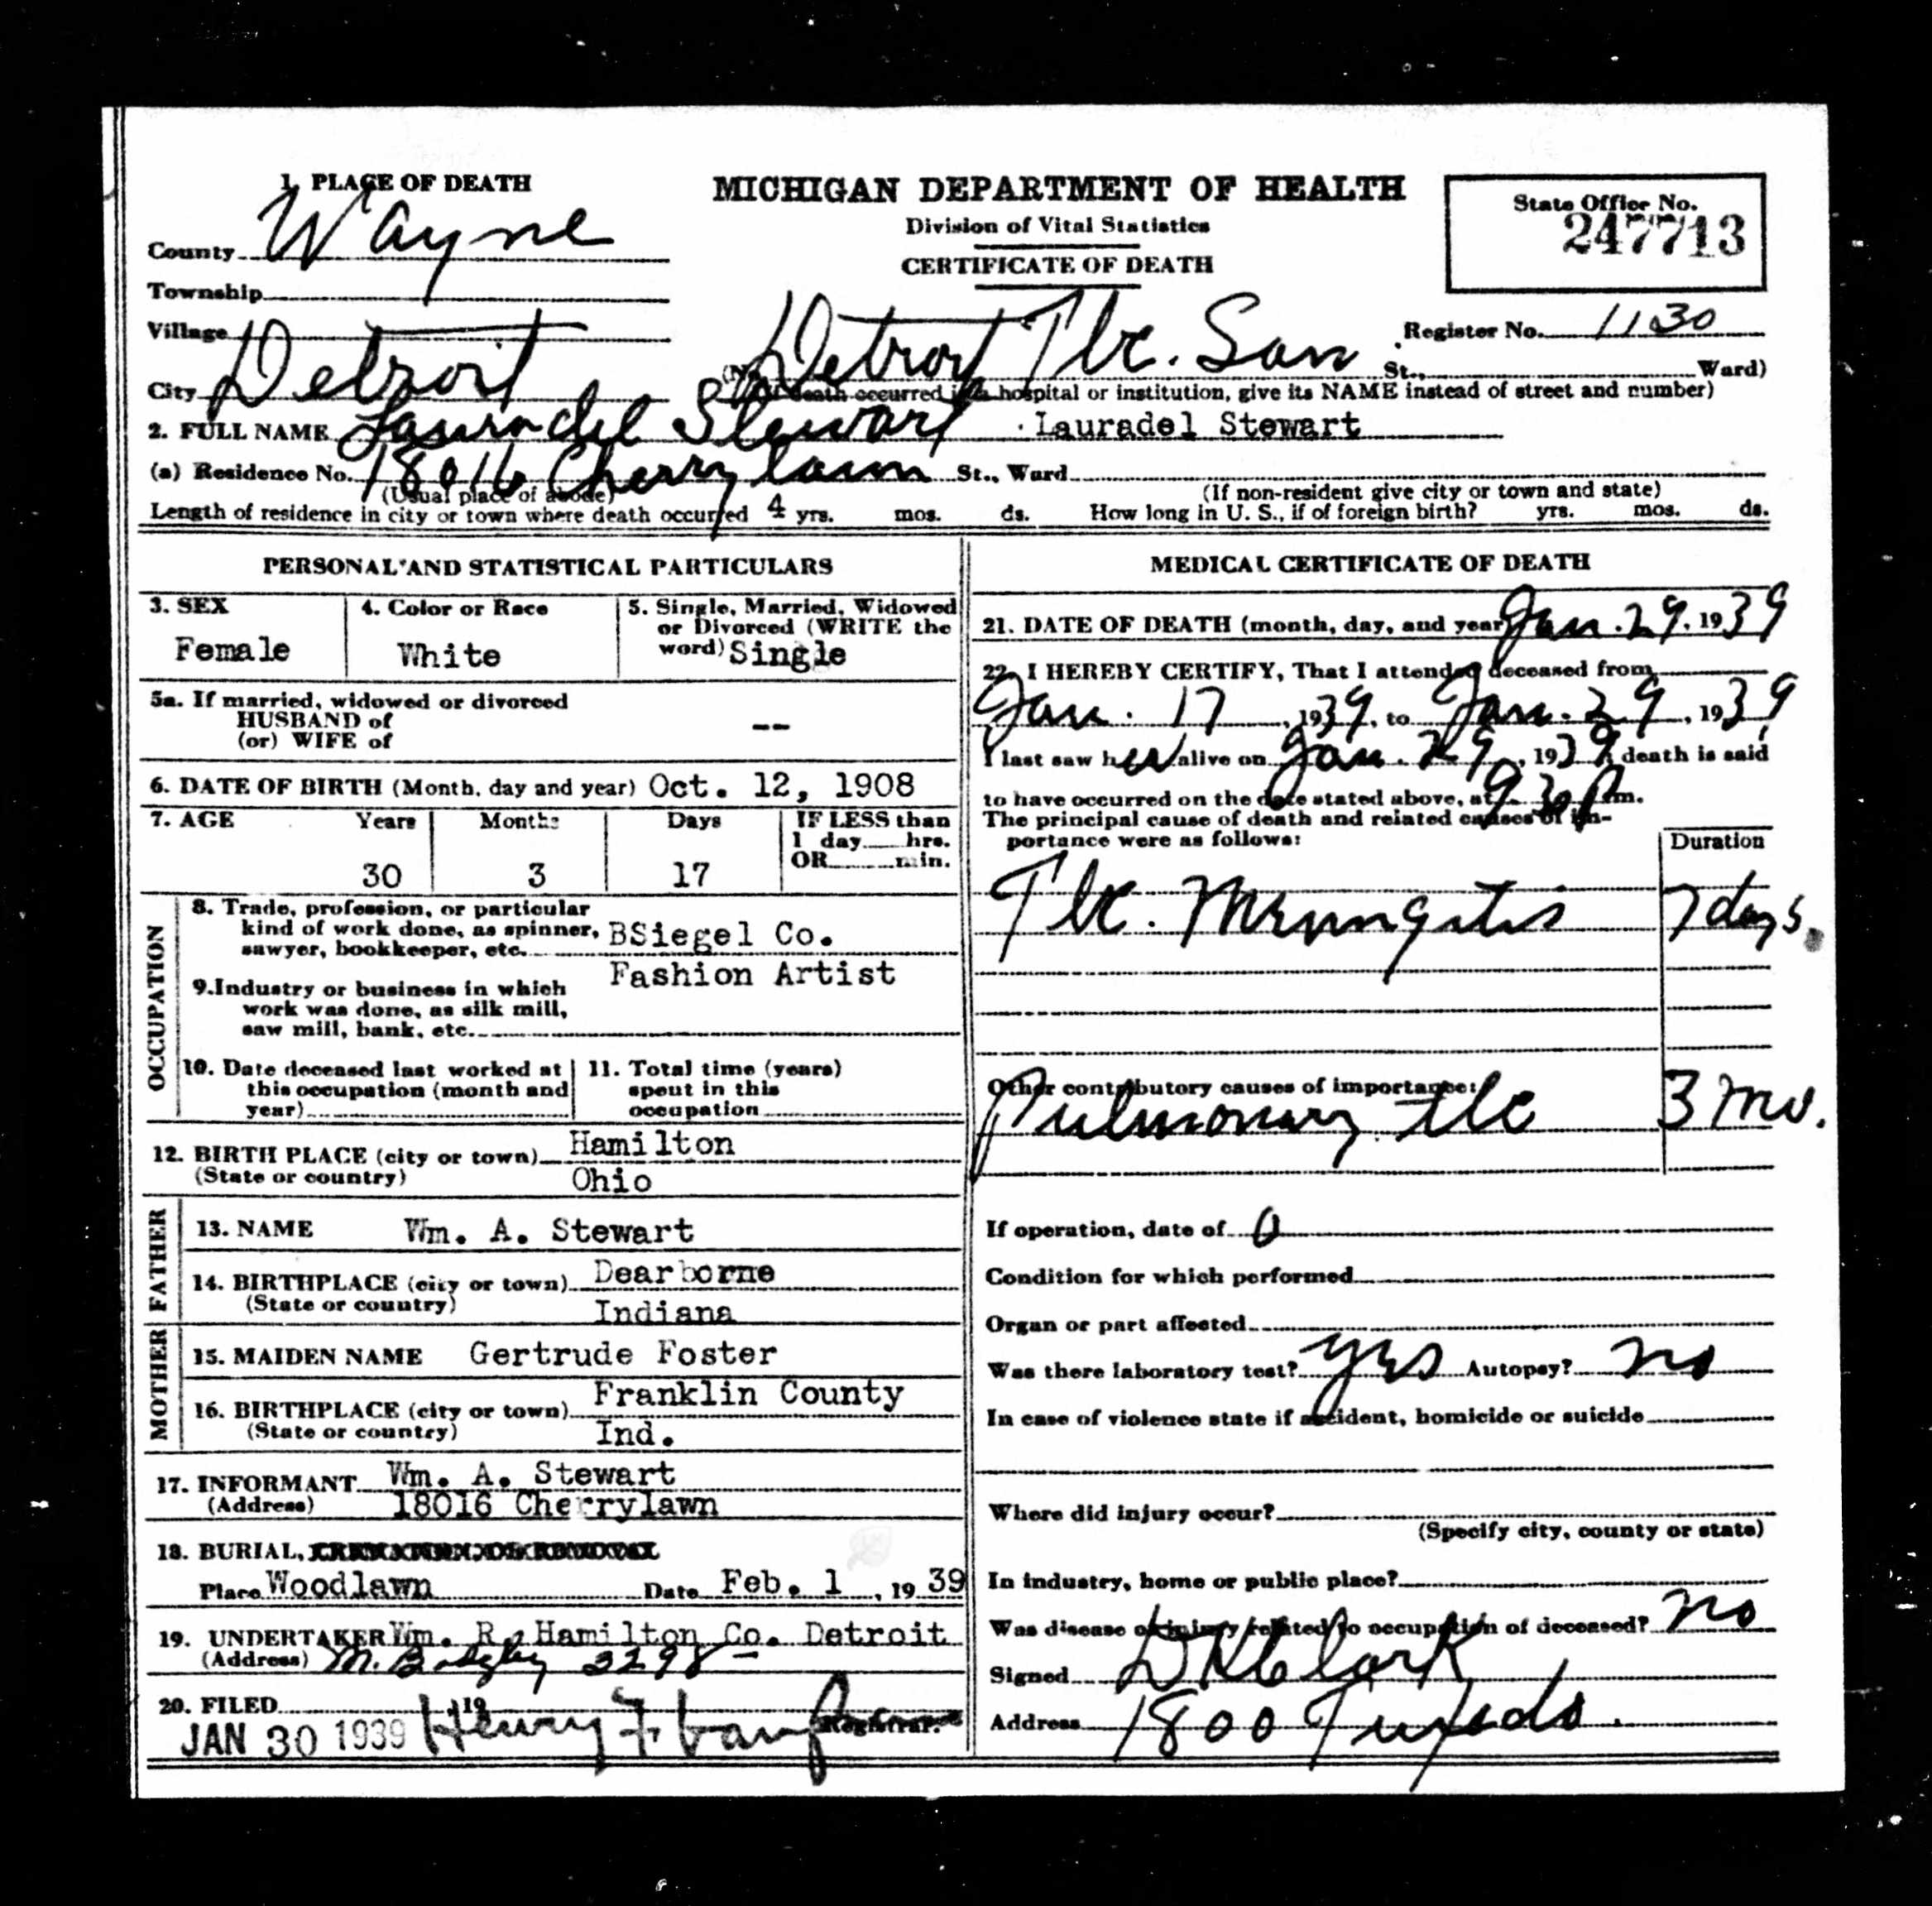 1. PLACE OF DEATH
MICHIGAN DEPARTMENT OF HEALTH
Division of Vital Statistics
CERTIFICATE OF DEATH
State Office No.
247713
County Wayne
Township
Village
Register No. 1130
City Detroit (No. Detroit Tbc. San St., Ward)
(If death occurred in a hospital or institution, give its NAME instead of street and number)
2. FULL NAME Lauradel Stewart Lauradel Stewart
(a) Residence No. 18016 Cherrylawn St., Ward
(Usual place of abode) (If non-resident give city or town and state)
Length of residence in city or town where death occurred 4 yrs. mos. ds. How long in U. S., if of foreign birth? yrs. mos. ds.
PERSONAL AND STATISTICAL PARTICULARS
3. SEX
Female
4. Color or Race
White
5. Single, Married, Widowed
or Divorced (WRITE the
word) Single
5a. If married, widowed or divorced
HUSBAND of
(or) WIFE of --
6. DATE OF BIRTH (Month, day and year) Oct. 12, 1908
7. AGE Years Months Days IF LESS than
1 day hrs.
OR min.
30 3 17
OCCUPATION
8. Trade, profession, or particular
kind of work done, as spinner,
sawyer, bookkeeper, etc. BSiegel Co.
Fashion Artist
9. Industry or business in which
work was done, as silk mill,
saw mill, bank, etc.
10. Date deceased last worked at
this occupation (month and
year)
11. Total time (years)
spent in this
occupation
12. BIRTH PLACE (city or town) Hamilton
(State or country) Ohio
FATHER
13. NAME Wm. A. Stewart
14. BIRTHPLACE (city or town) Dearborne
(State or country) Indiana
MOTHER
15. MAIDEN NAME Gertrude Foster
16. BIRTHPLACE (city or town) Franklin County
(State or country) Ind.
17. INFORMANT Wm. A. Stewart
(Address) 18016 Cherrylawn
18. BURIAL,
Place Woodlawn Date Feb. 1, 19 39
19. UNDERTAKER Wm. R. Hamilton Co. Detroit
(Address) 3298
20. FILED 19
JAN 30 1939 Henry F. Vaughan Registrar.
MEDICAL CERTIFICATE OF DEATH
21. DATE OF DEATH (month, day, and year) Jan. 29, 1939
22. I HEREBY CERTIFY, That I attended deceased from
Jan. 17, 1939, to Jan. 29, 1939
I last saw her alive on Jan. 29, 1939, death is said
to have occurred on the date stated above, at 9 30 Pm.
The principal cause of death and related causes of im-
portance were as follows:
Duration
Tbc. Meningitis 7 days.
Other contributory causes of importance:
Pulmonary tbc 3 mo.
If operation, date of 0
Condition for which performed
Organ or part affected
Was there laboratory test? yes Autopsy? no
In case of violence state if accident, homicide or suicide
Where did injury occur?
(Specify city, county or state)
In industry, home or public place?
Was disease or injury related to occupation of deceased? no
Signed D K Clark
Address 1800 Tuxedo.